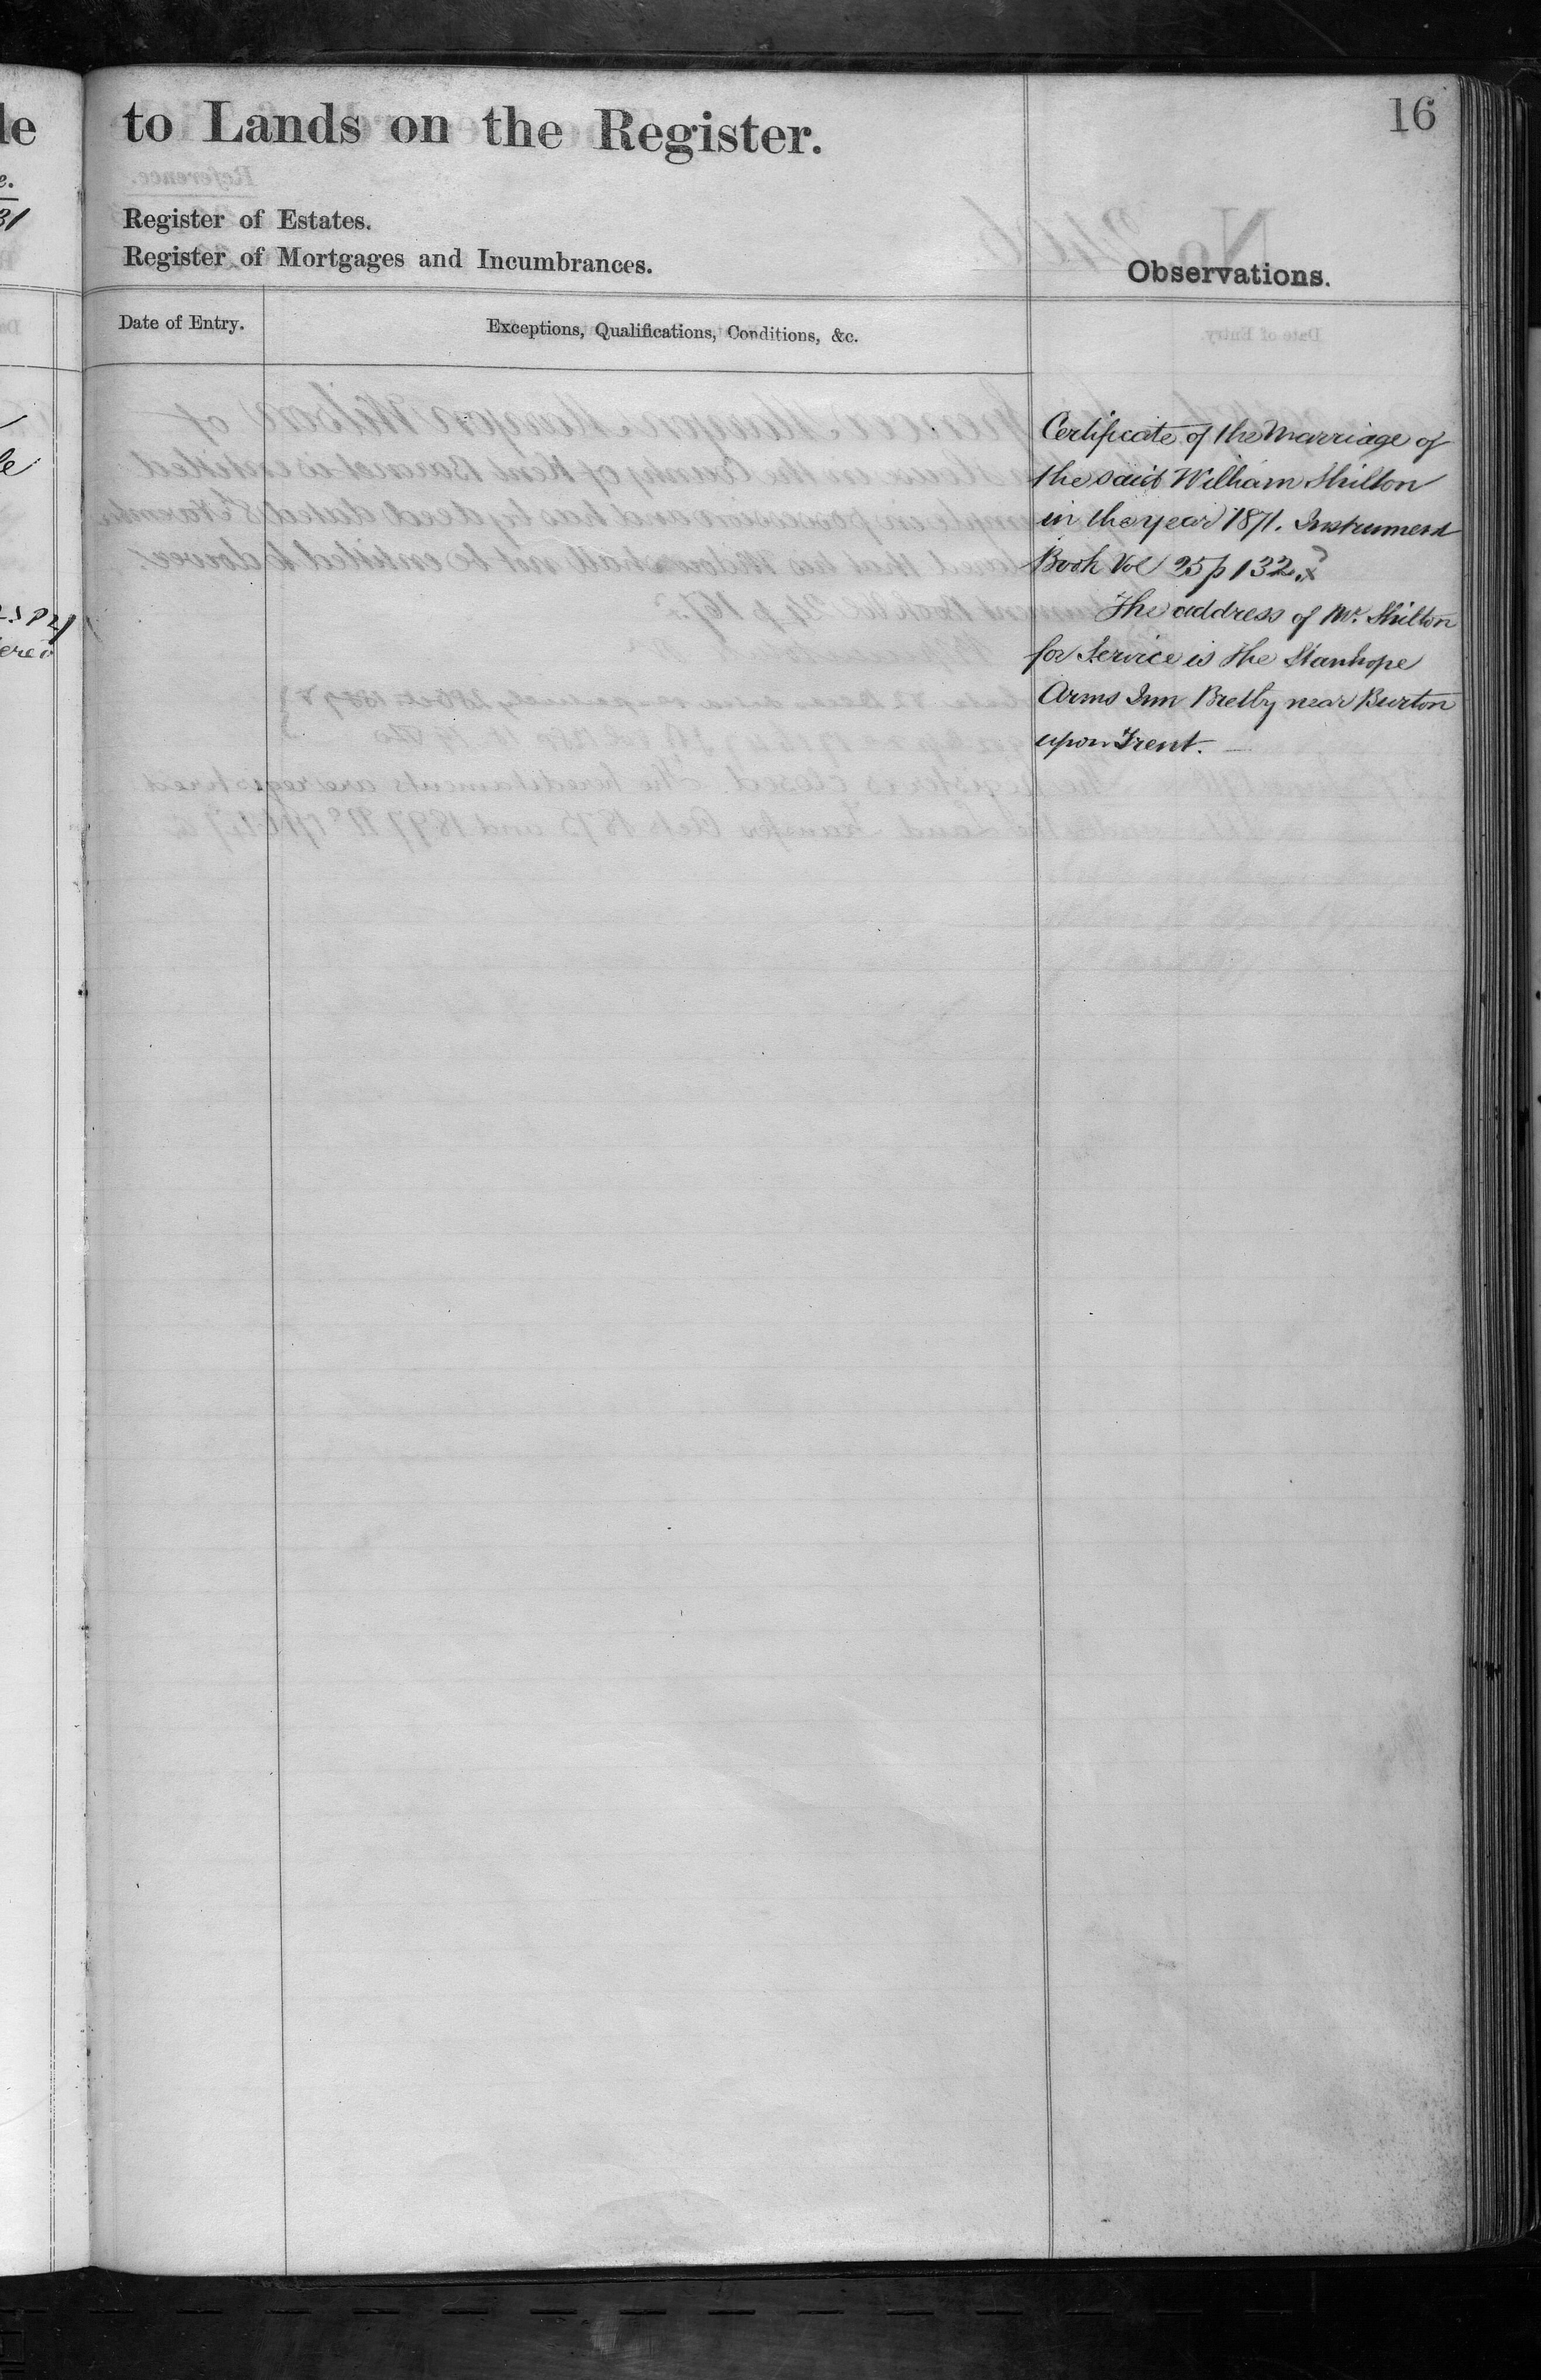 to Lands on the Register.
16
Register of Estates.
Register of Mortgages and Incumbrances.
Observations.
Date of Entry.
Exceptions, Qualifications, Conditions, &c.
Certificate of the Marriage of
the said William Shilton
in the year 1871. Instrument
Book Vol 25 p 132.
The address of Mr. Shilton
for Service is The Stanhope
Arms Inn Bretby near Burton
upon Trent.